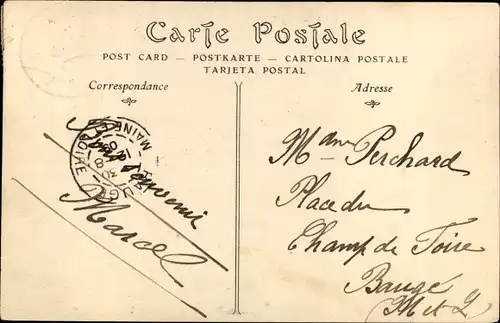 Carte Postale
POST CARD — POSTKARTE — CARTOLINA POSTALE
TARJETA POSTAL
Correspondance
Adresse
MAINE ET LOIRE
Souvenir
Marcel
Mme Perchard
Place du
Champ de Foire
Baugé
M et L